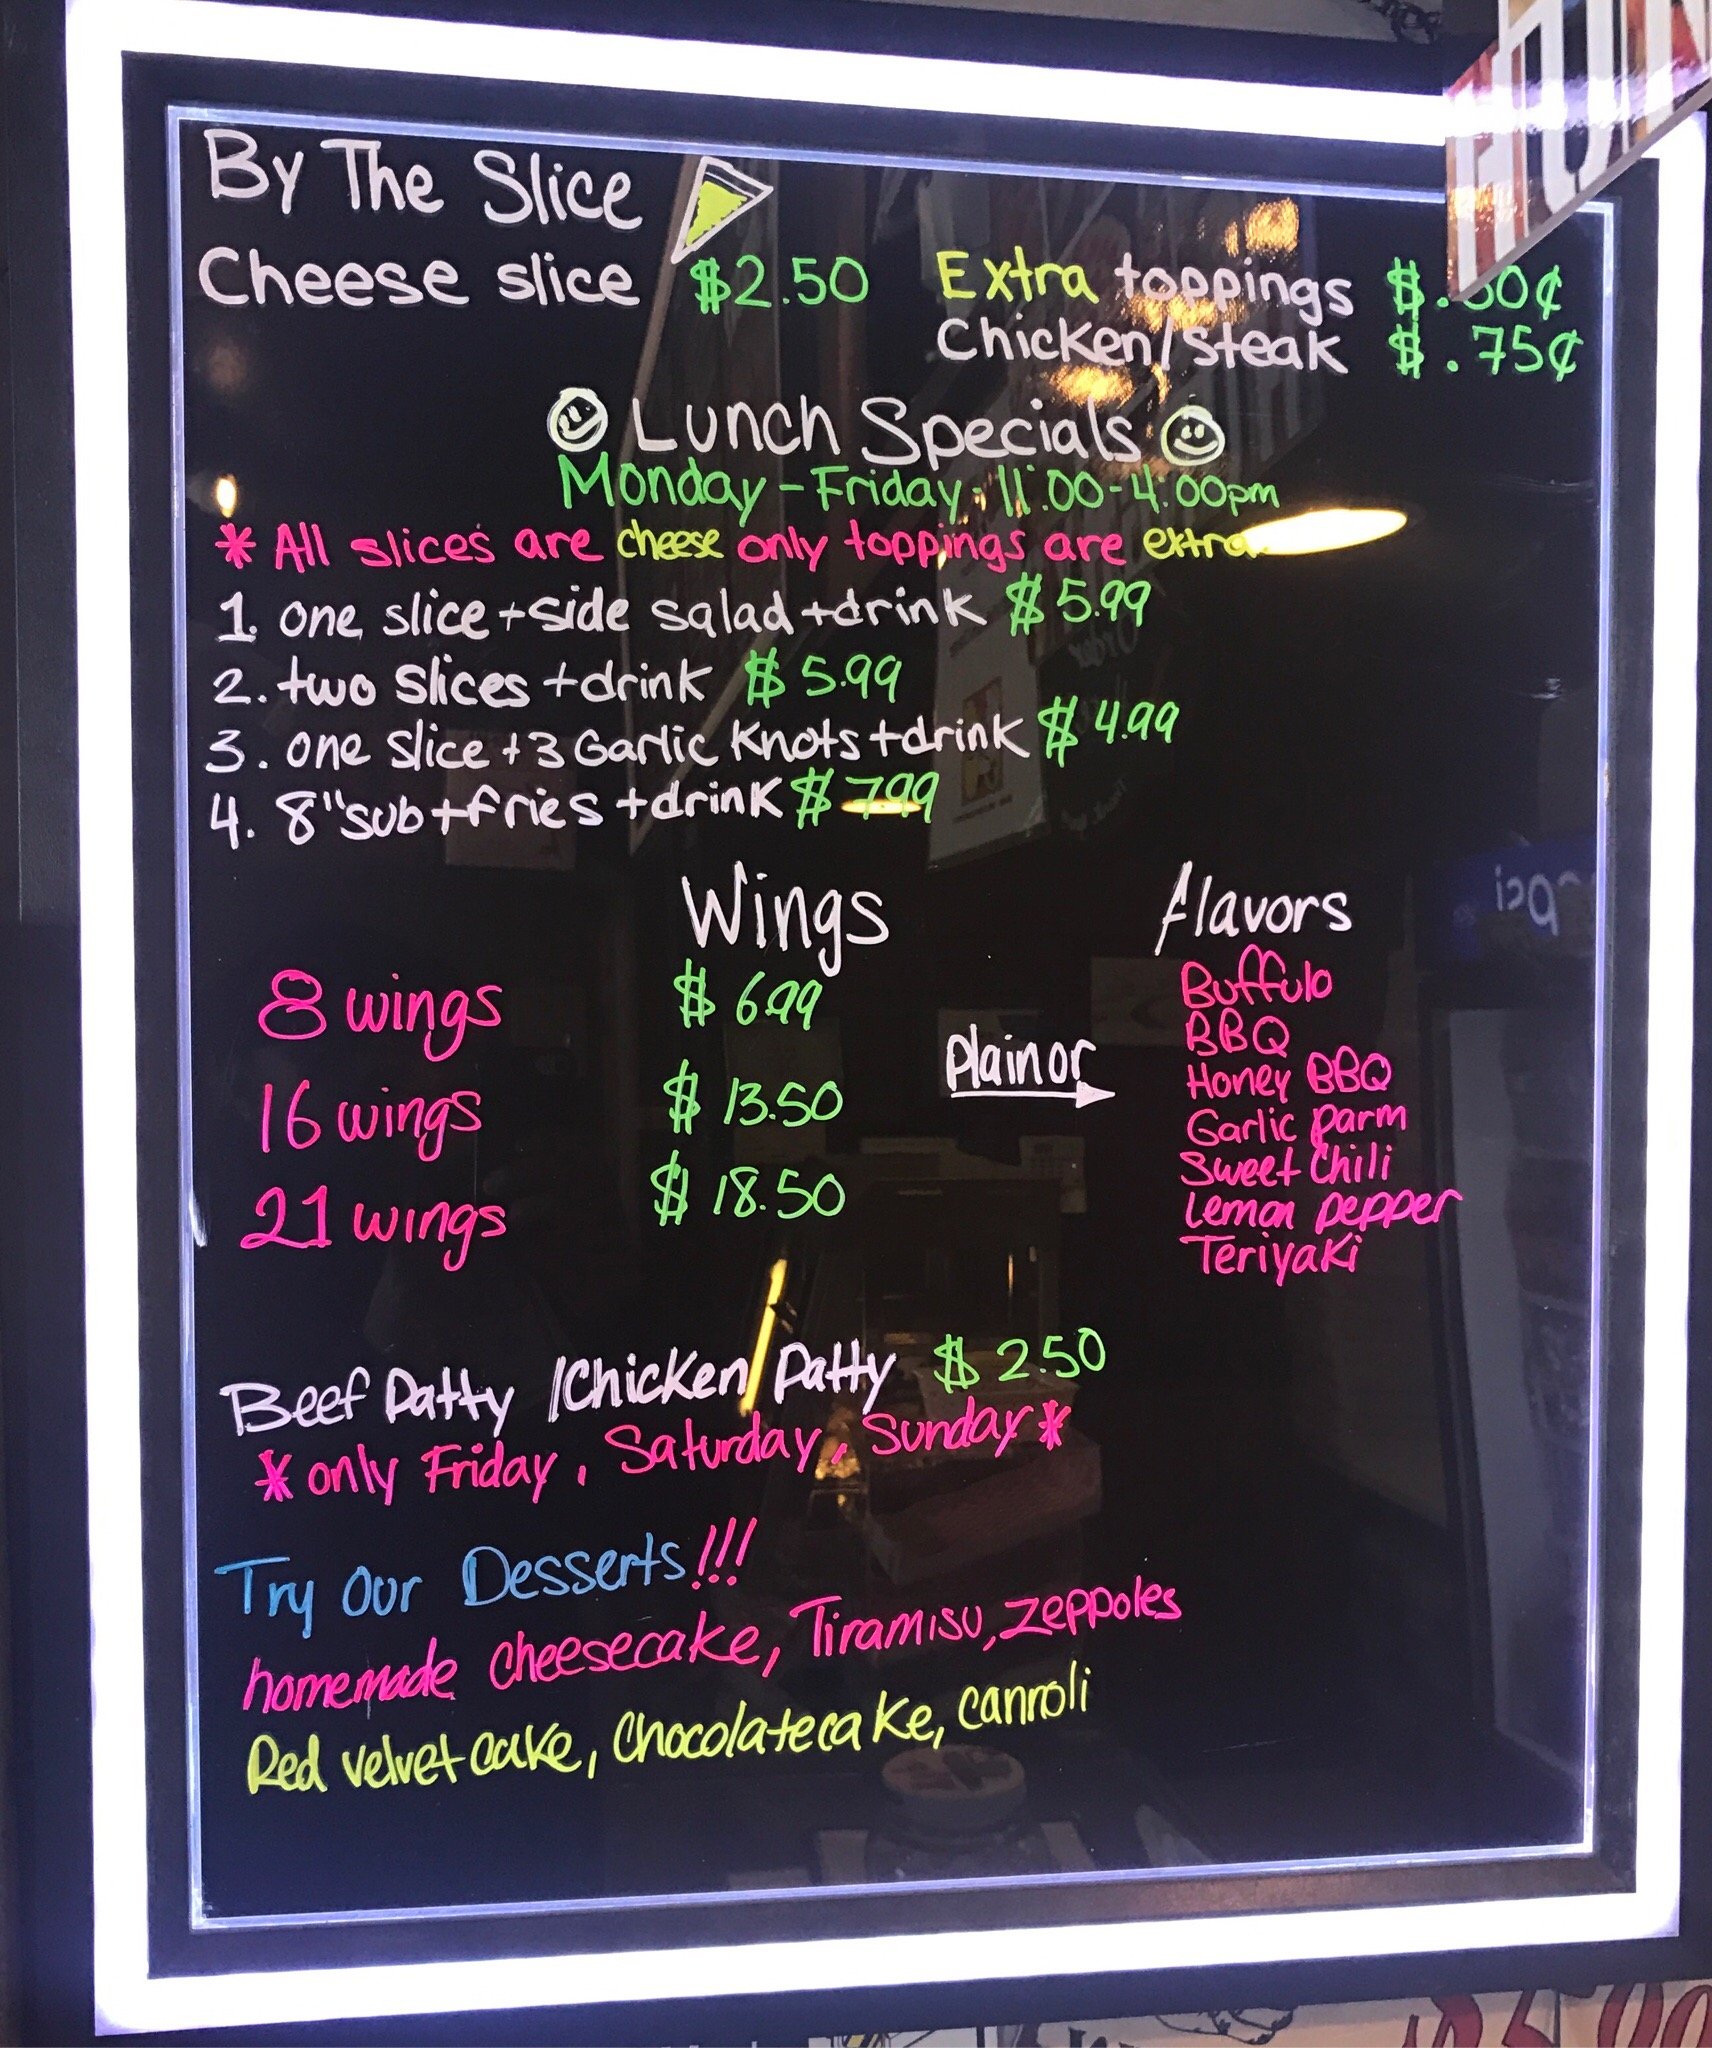 By The Slice
Cheese slice $2.50
Extra toppings
Chicken/Steak $.75¢
Lunch Specials
Monday-Friday 11:00-4:00pm
* All slices are cheese only toppings are extra
1. one slice + side salad + drink $5.99
2. two slices + drink $5.99
3. one slice + 3 Garlic Knots + drink $4.99
4. 8" sub + fries + drink $7.99
Wings
8 wings $6.99
16 wings $13.50
21 wings $18.50
Plain or
flavors
Buffulo
BBQ
Honey BBQ
Garlic parm
Sweet Chili
Lemon pepper
Teriyaki
Beef Patty /Chicken Patty $2.50
*only Friday, Saturday, Sunday*
Try our Desserts!!!
homemade cheesecake, Tiramisu, Zeppoles
Red velvet cake, Chocolate cake, cannoli